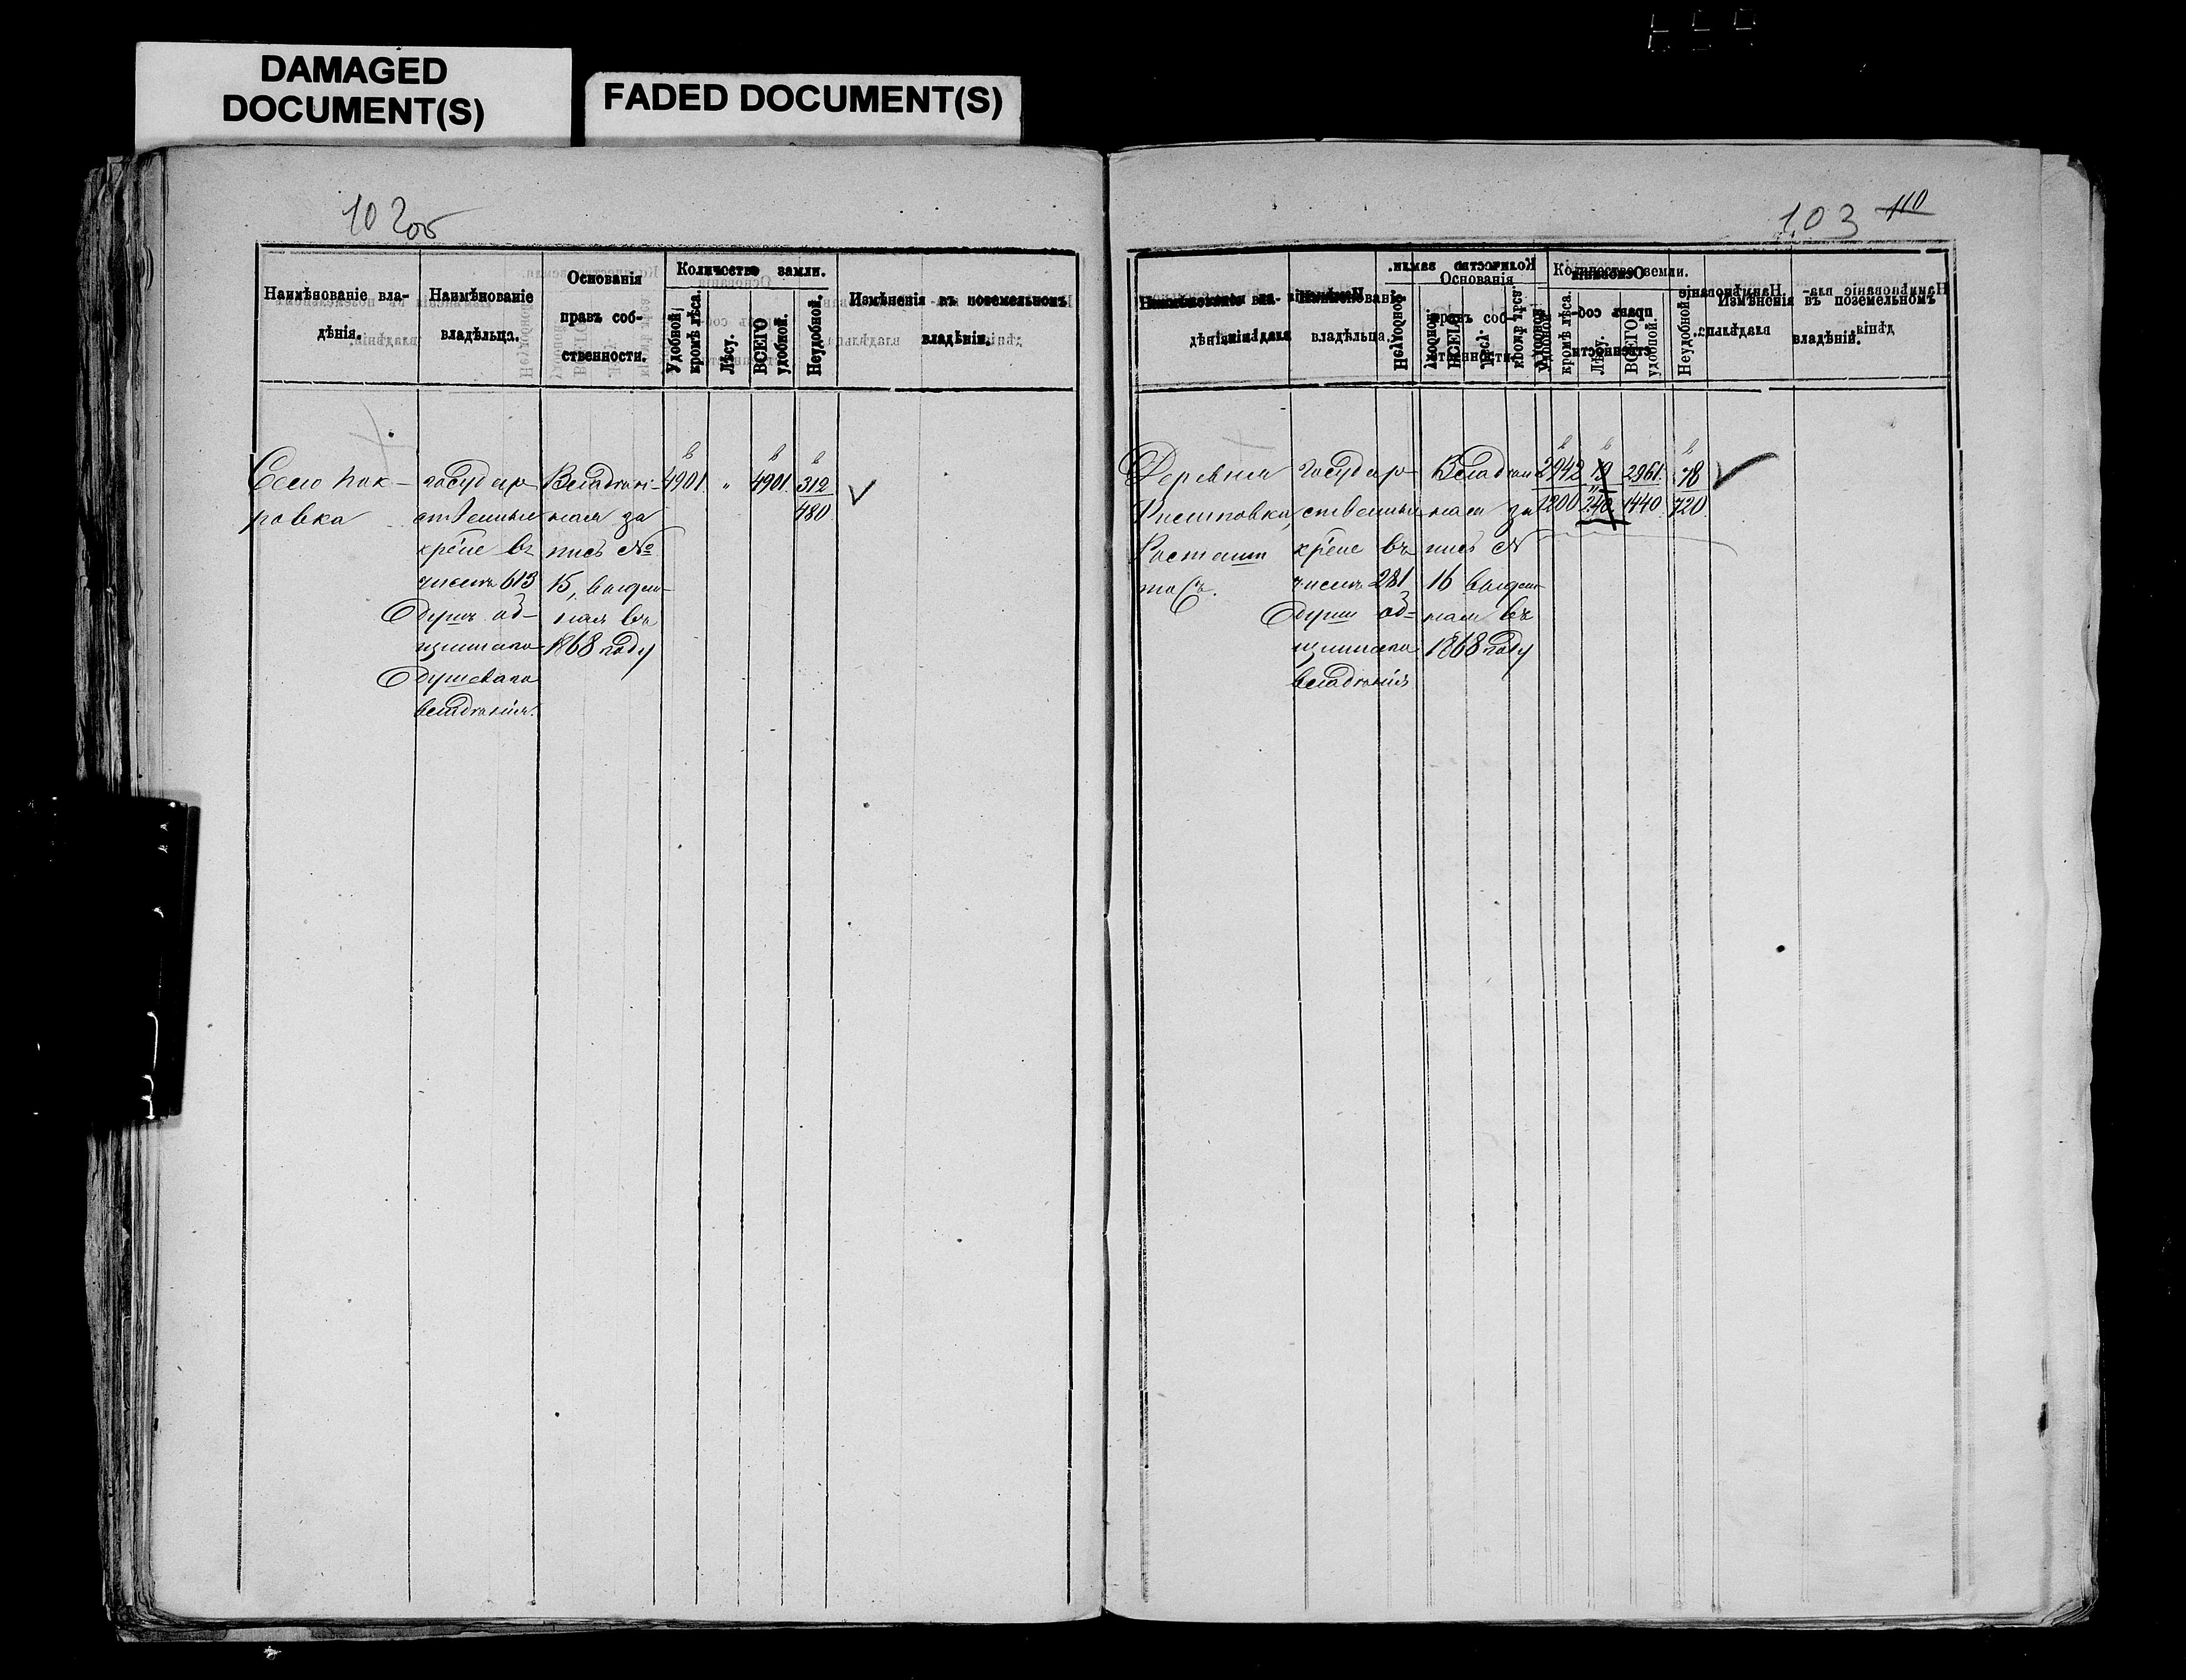 DAMAGED
DOCUMENT(S)
FADED DOCUMENT(S)
102об
Наимѣнованіе вла-
дѣнія.
Наимѣнованіе
владѣльца.
Основанія
правъ соб-
ственности.
Количество земли.
Удобной,
кромѣ лѣса.
Лѣсу.
ВСЕГО
удобной.
Неудобной.
Измѣненія въ поземельномъ
владѣніи.
Село Пок-
ровка
государ
ственные
крѣпе въ
числѣ 613
душъ об-
щинного
душевого
владѣнія.
Владѣн-
ная за
пись №
15, выдан
ная въ
1868 году
4901. " 4901. 312
480
103 110
Наимѣнованіе вла-
дѣнія.
Наимѣнованіе
владѣльца.
Основанія
правъ соб-
ственности.
Количество земли.
Удобной
кромѣ лѣса.
Лѣсу.
ВСЕГО
удобной.
Неудобной.
Измѣненія въ поземельномъ
владѣніи.
Деревня
государ
ственные
крѣпе въ
числѣ 281
души об-
щинного
владѣнія
Владѣн
ная за
пись №
16 выдан
ная въ
1868 году
2942 19 2961. 78
1200 240 1440. 720.